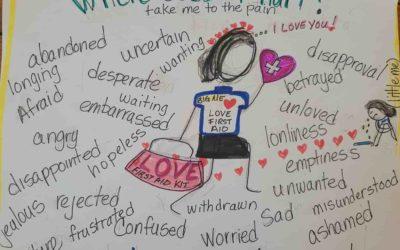 take me to the pain
... I LOVE YOU!
abandoned
uncertain
wanting
longing
desperate
disapproval
Afraid
waiting
betrayed
embarrassed
BIG ME
LOVE
FIRST
AID
unloved
little me
angry
lonliness
hopeless
disappointed
emptiness
LOVE
FIRST AID KIT
unwanted
jealous
rejected
withdrawn
misunderstood
frustrated
Confused
Sad
Worried
ashamed